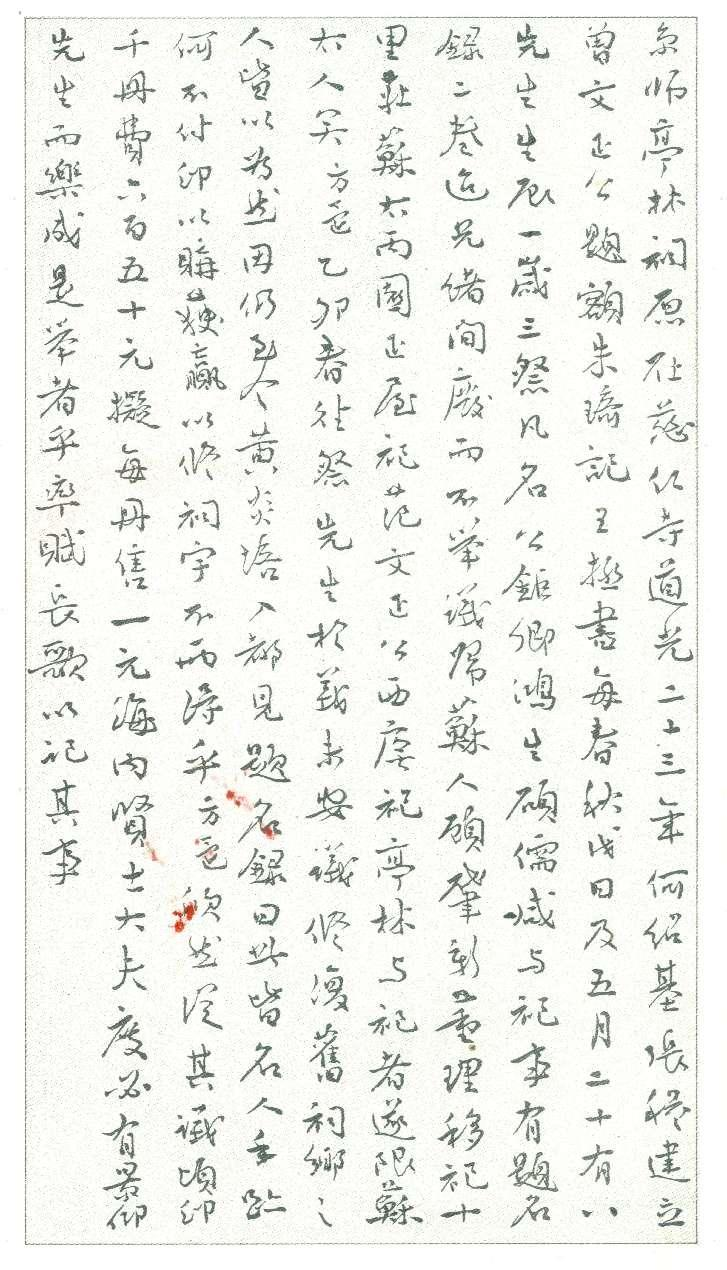 京師亭林祠原在慈仁寺道光二十三年何紹基張穆建立
曾文正公題額朱琦記王拯書每春秋戊日及五月二十有八
先生生辰一歲三祭凡名公鉅卿鴻生碩儒咸与祀事有題名
錄二卷迄光緒間廢而不举議歸蘇人顧肇新董理移祀十
里莊蘇太兩園正屋祀范文正公西廡祀亭林与祀者遂限蘇
太人矣方邑乙卯春往祭先生於義未安議修復舊祠鄉之
人皆以為然因仍至今黃炎培入都見題名錄曰此皆名人手跡
何不付印以購獲贏以修祠宇不兩得乎方邑欣然從其議頃印
千冊費六百五十元擬每冊售一元海內賢士大夫度必有景仰
先生而樂成是举者乎率賦長歌以記其事